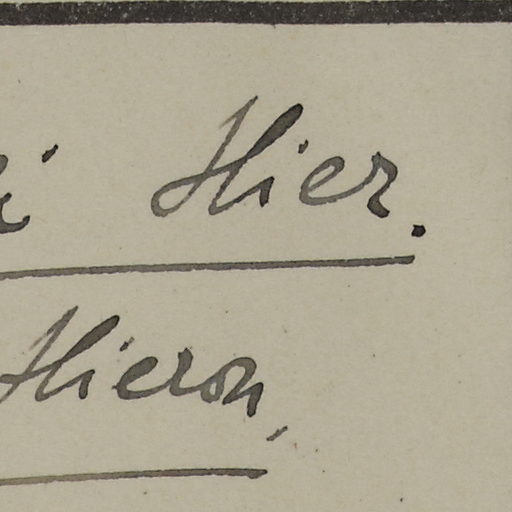 i Hier.
Hieron,